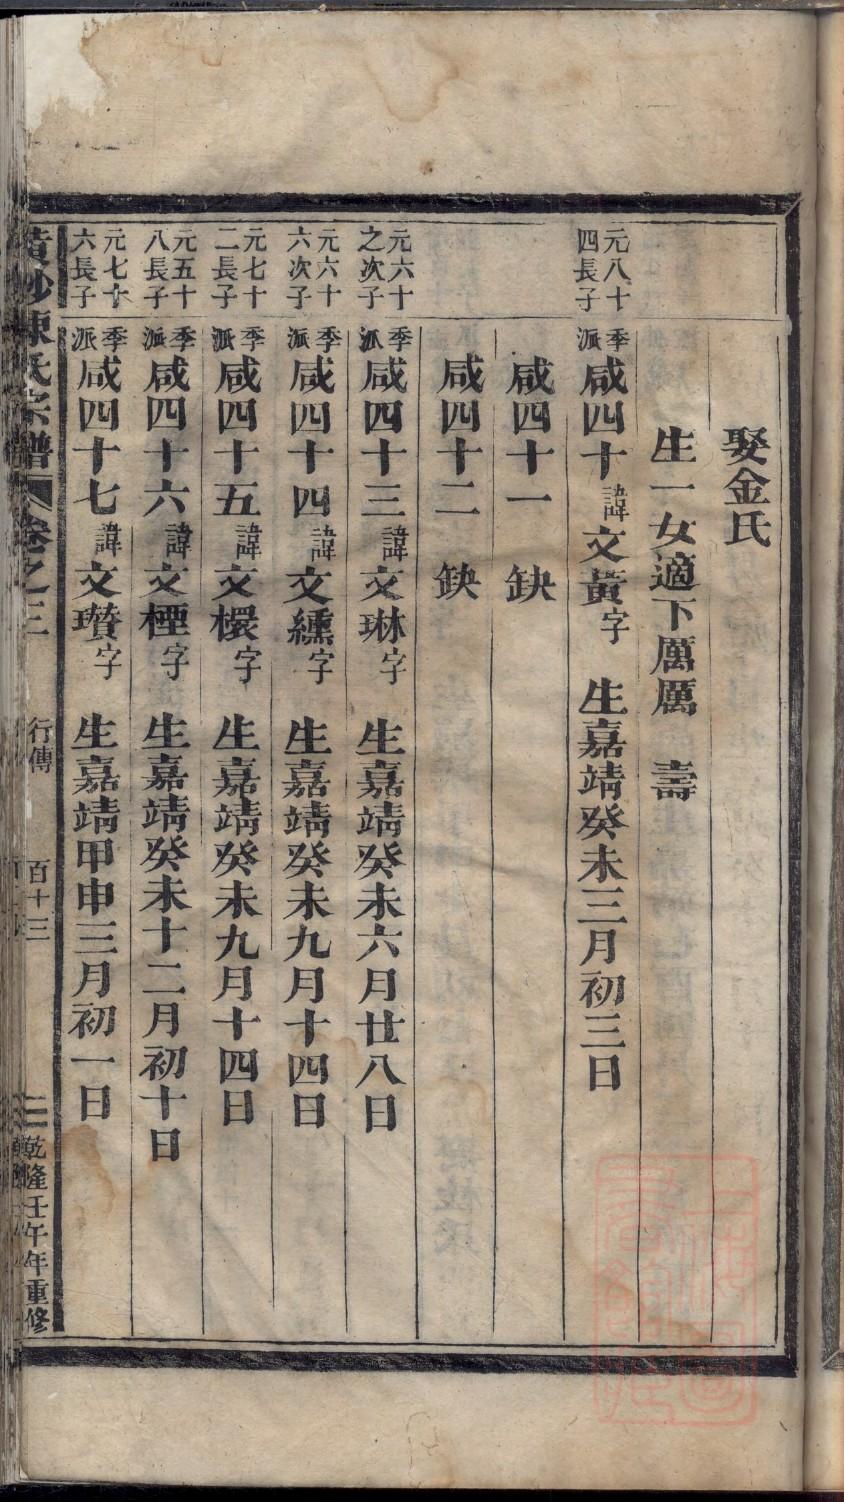 娶金氏
生一女適下厲厲 壽
元八十四長子 季派咸四十諱文黃字 生嘉靖癸未三月初三日
咸四十一 缺
咸四十二 缺
元六十之次子 季派咸四十三諱文琳字 生嘉靖癸未六月廿八日
元六十六次子 季派咸四十四諱文纁字 生嘉靖癸未九月十四日
元七十二長子 季派咸四十五諱文檂字 生嘉靖癸未九月十四日
元五十八長子 季派咸四十六諱文檉字 生嘉靖癸未十二月初十日
元七十六長子 季派咸四十七諱文瓚字 生嘉靖甲申三月初一日
陳氏宗譜 卷之三 行傳 百十三 乾隆壬午年重修